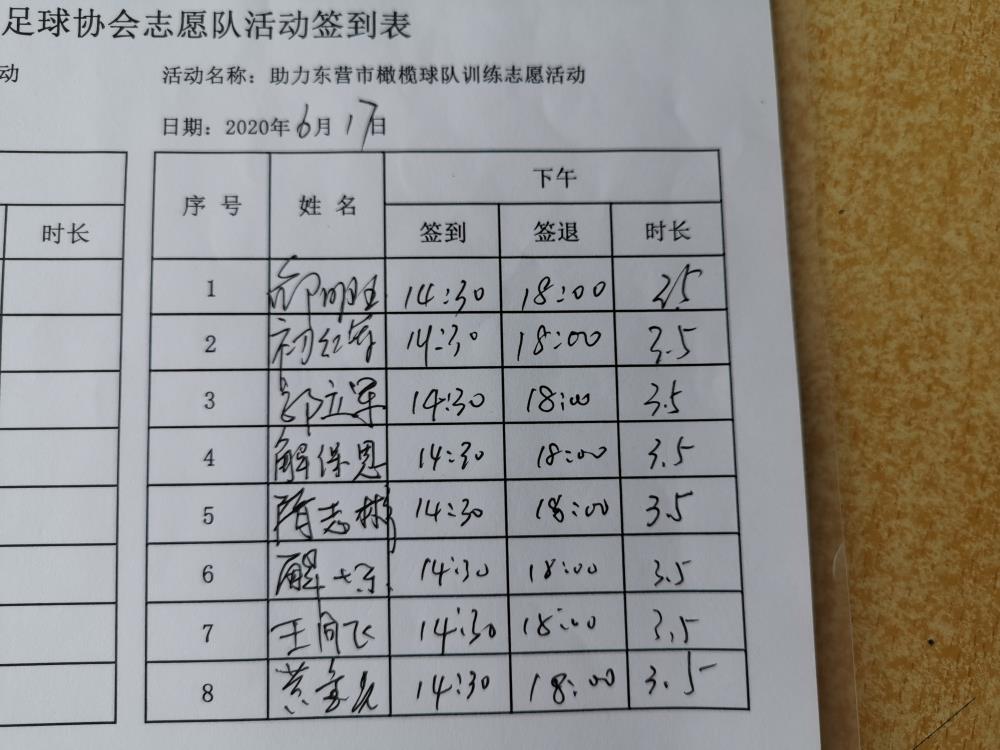 足球协会志愿队活动签到表
动
活动名称：助力东营市橄榄球队训练志愿活动
日期：2020年6月17日
序号 姓名 下午
时长
签到 签退 时长
1 邱明旺 14:30 18:00 3.5
2 初红军 14:30 18:00 3.5
3 郭立军 14:30 18:00 3.5
4 解保恩 14:30 18:00 3.5
5 隋志彬 14:30 18:00 3.5
6 解 14:30 18:00 3.5
7 王同飞 14:30 18:00 3.5
8 黄金 14:30 18:00 3.5